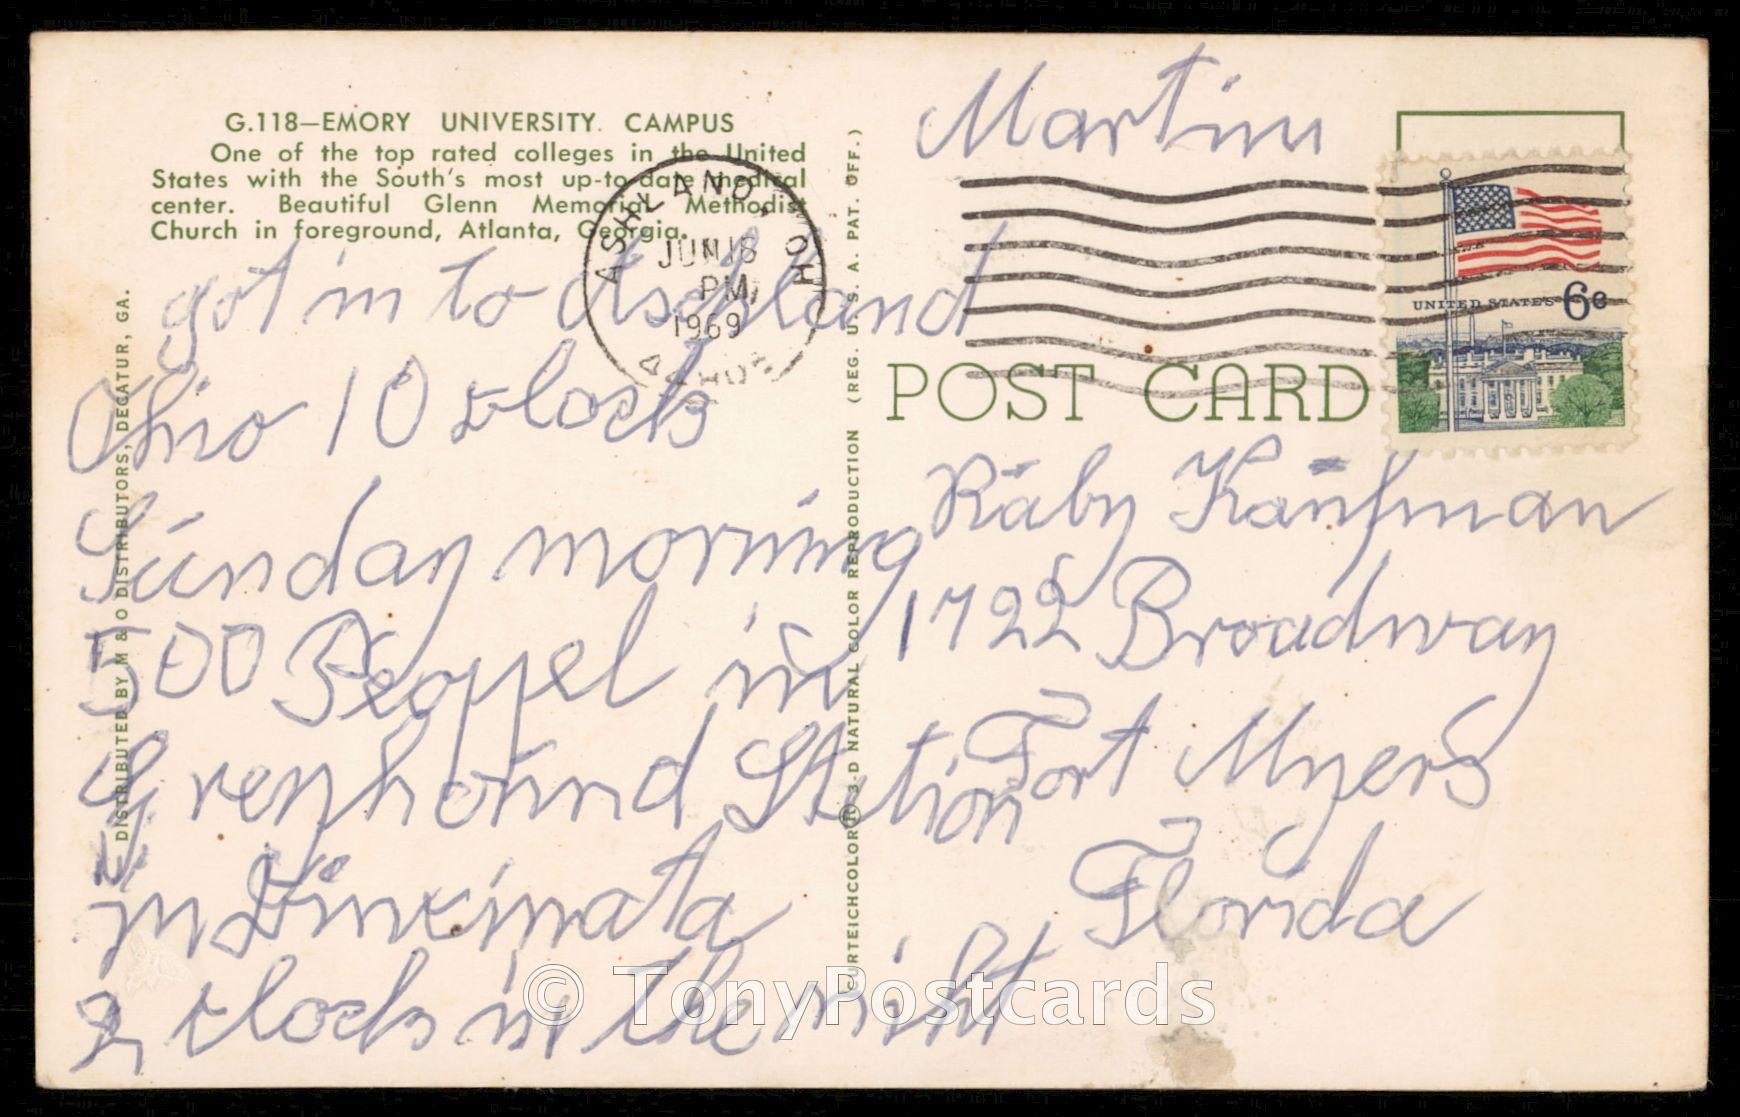 G.118—EMORY UNIVERSITY CAMPUS
One of the top rated colleges in the United
States with the South's most up-to-date medical
center. Beautiful Glenn Memorial Methodist
Church in foreground, Atlanta, Georgia.
ASHLAND, OHIO
JUN 16
PM
1969
got in to Aschland
Ohio 10 clock
Sunday morning
500 Peoppel in
Greyhound Station
in Cincinata
2 clock in the night
DISTRIBUTED BY M & O DISTRIBUTORS, DECATUR, GA.
CURTEICHCOLOR® 3-D NATURAL COLOR REPRODUCTION (REG. U.S.A. PAT. OFF.)
Martin
UNITED STATES 6c
POST CARD
Ruby Kaufman
1722 Broadway
Fort Myers
Florida
© TonyPostcards